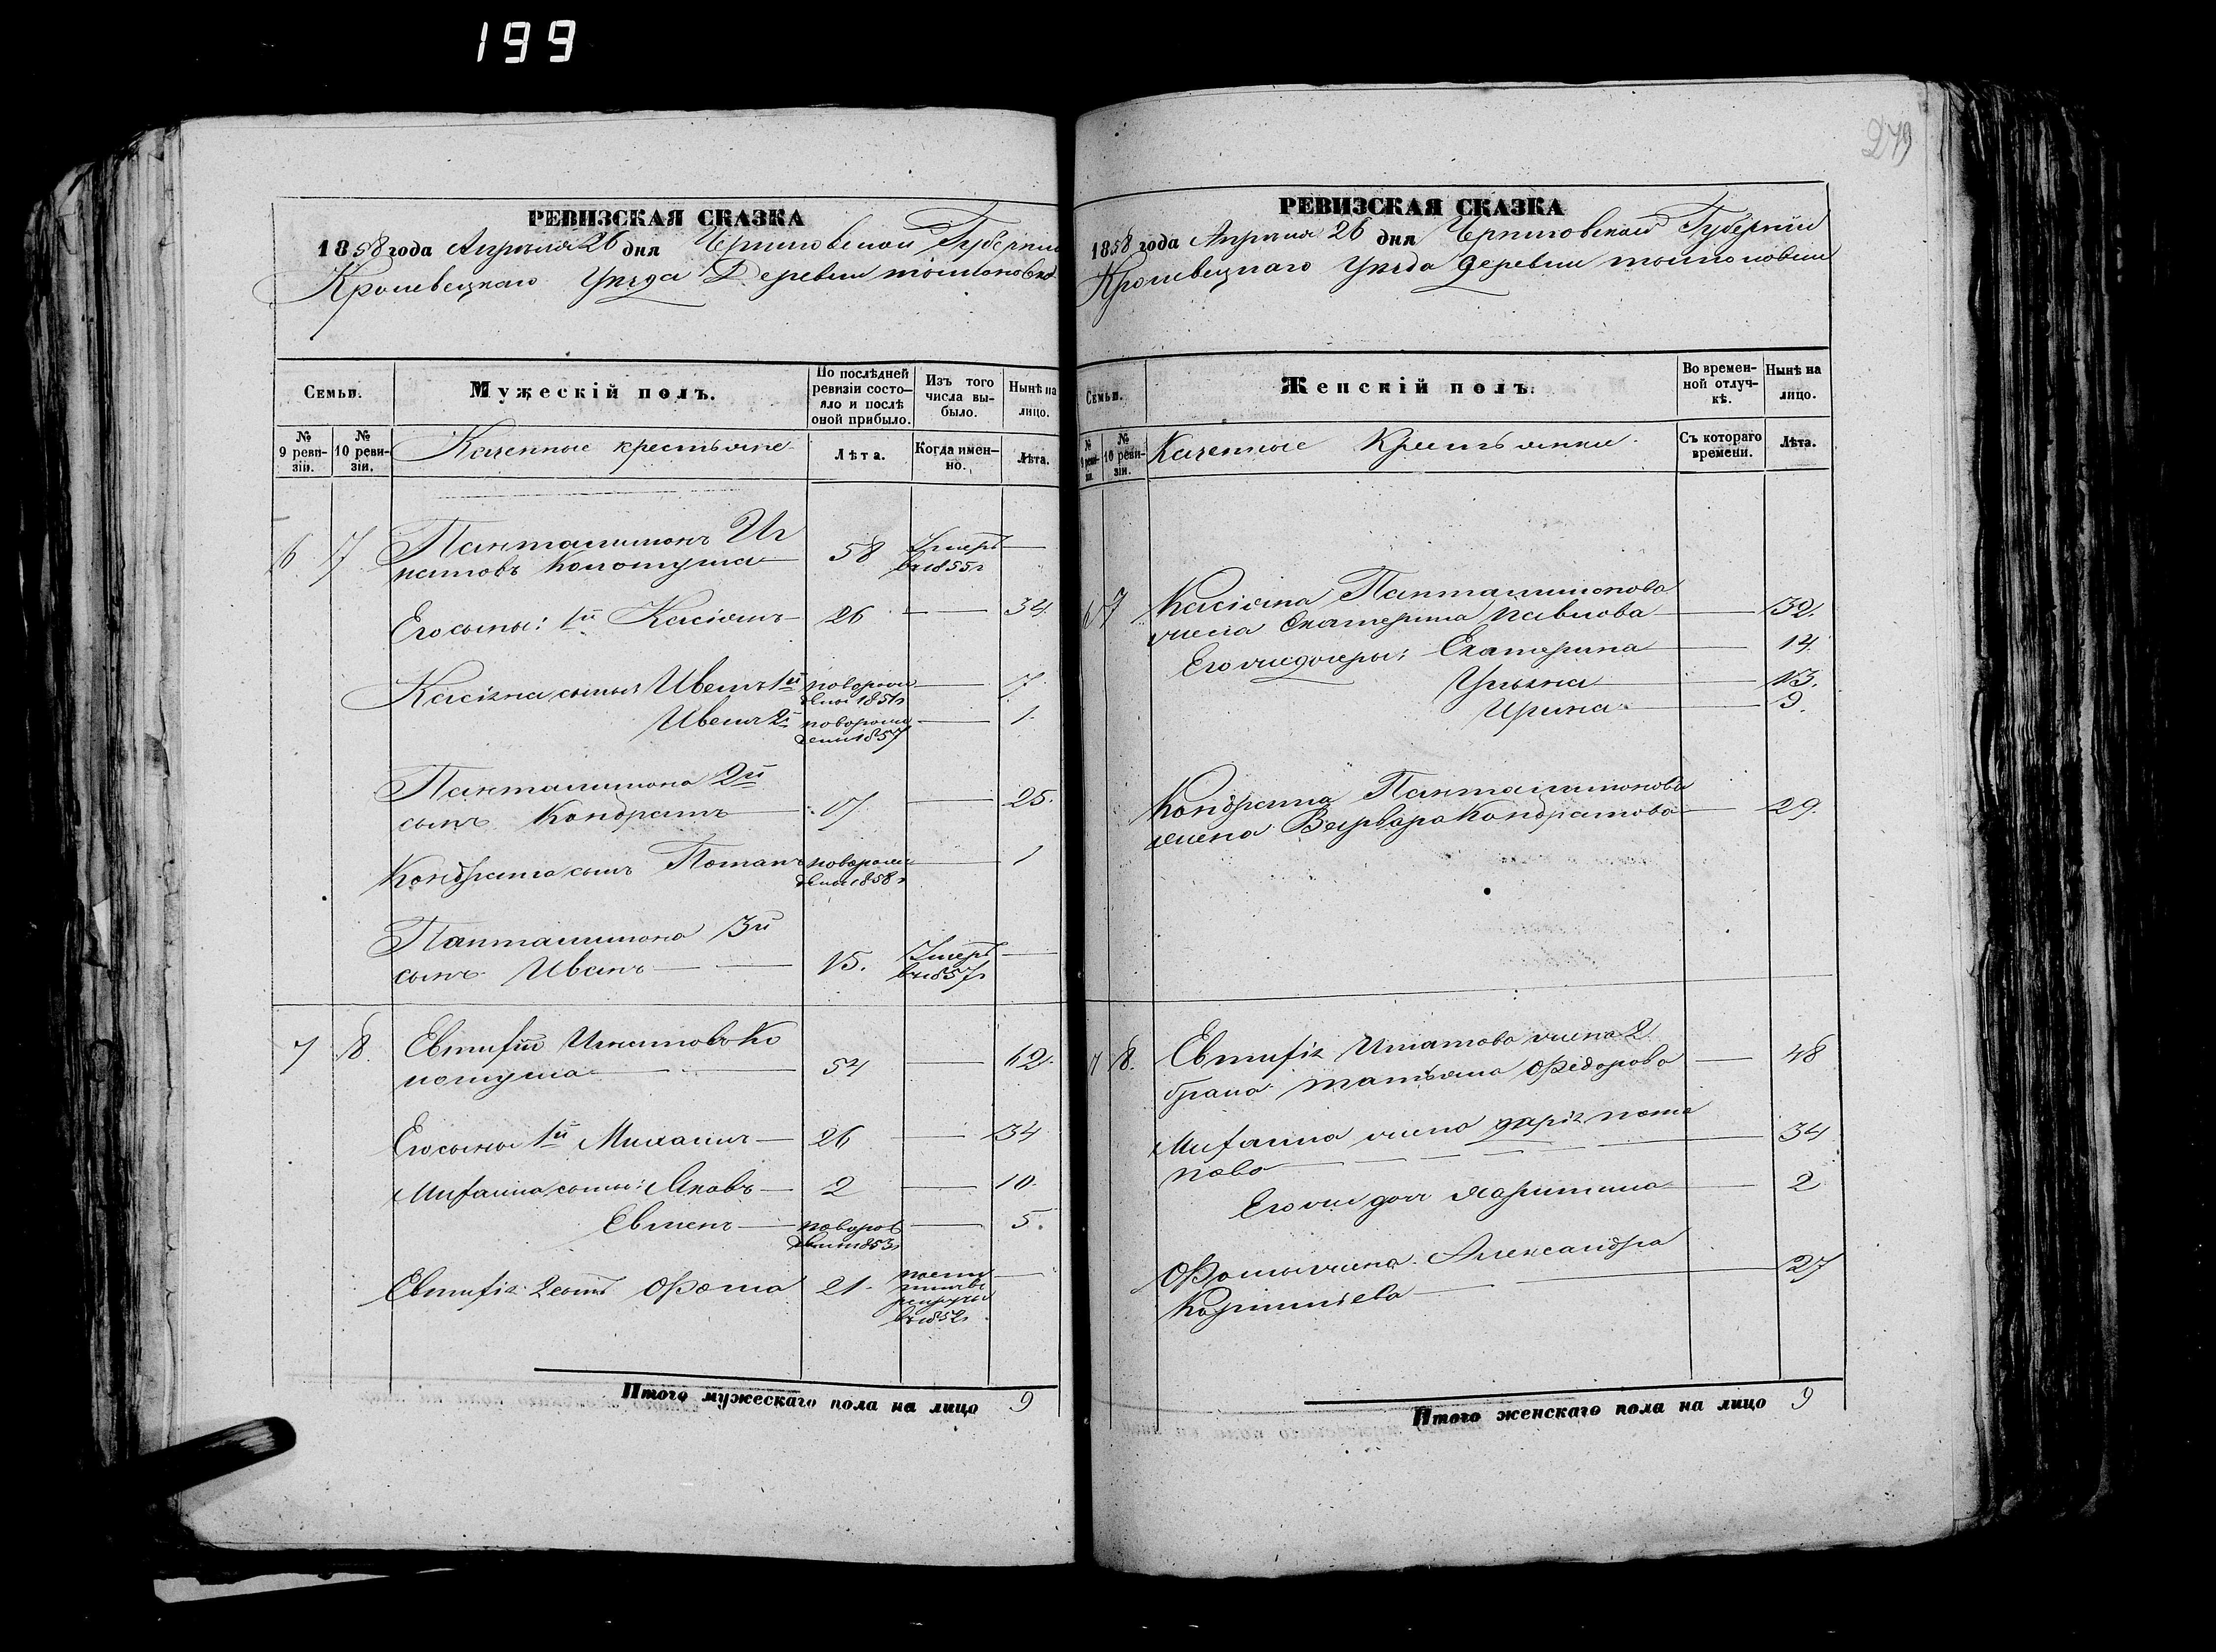 199
279
РЕВИЗСКАЯ СКАЗКА
1858 года Апреля 26 дня Черниговской Губернии
Кролевецкаго Уезда Деревни
Семьи.
Мужескій полъ.
По послѣдней ревизіи состо-
яло и послѣ
оной прибыло.
Изъ того
числа вы-
было.
Нынѣ на
лицо.
№
9 реви-
зіи.
№
10 реви-
зіи.
Казенные крестьяне
Лѣта.
Когда имен-
но.
Лѣта.
6 7 Панталимонъ Иг
натовъ Колотуша 58 Умеръ
въ 1855 г
Его сыны: 1й Касіянъ 26 — 34
Касіяна сыны: Иванъ 1й 1851 г — 7
Иванъ 2й 1857 — 1.
Панталимона 2й
сынъ Кондратъ 17 — 25.
Кондрата сынъ Потапъ 1858 г — 1
Панталимона 3й
сынъ Иванъ 15. Умеръ
въ 1857 г —
7 8. Евтифій Игнатовъ Ко
лотуша 54 — 62.
Его сыны 1й Михаилъ 26 — 34
Михаила сыны: Яковъ 2 — 10.
Евменъ 1853 г — 5.
Евтифія 2 сынъ Фома 21 въ
рекруты
въ 1852 г —
Итого мужескаго пола на лицо 9
РЕВИЗСКАЯ СКАЗКА
1858 года Апреля 26 дня Черниговской Губерніи
Кролевецкаго Уезда деревни
Семьи.
Женскій полъ.
Во времен-
ной отлуч-
кѣ.
Нынѣ на
лицо.
№
9 реви-
зіи
№
10 реви-
зіи.
Казенные Крестьянки
Съ котораго
времени.
Лѣта.
6 7 Касіяна Панталимонова
жена Екатерина Павлова — 32.
Его же дочери: Екатерина — 14.
Ульяна — 13.
Ирина — 9.
Кондрата Панталимонова
жена Варвара Кондратова — 29.
7 8. Евтифія Игнатова жена 2
брака Татьяна Федорова — 48
Михаила жена Дарія Пота
пова — 34
Его же дочь Харитина — 2
Фомы жена Александра
— 27
Итого женскаго пола на лицо 9